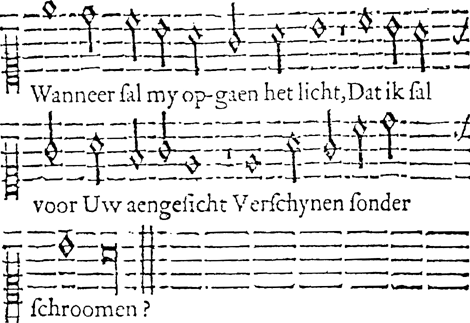 Wanneer ſal my op-gaen het licht, Dat ik ſal
voor Uw aengeſicht Verſchynen ſonder
ſchroomen?